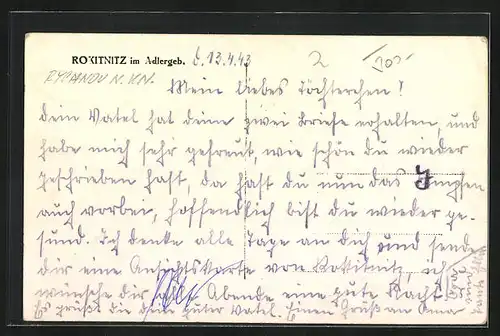 ROKITNITZ im Adlergeb. d. 13.4.43 2
Mein liebes Töchterchen!
dein Vatel hat deine zwei Briefe erhalten, und
habe mich sehr gefreut, wie schön du wieder
geschrieben hast, da hast du nun das Impfen
auch vorbei, hoffendlich bist du wieder ge-
sund. Ich denke alle Tage an dich und sende
dir eine Ansichtskarte von Rokitnitz, ich
wünsche dir alle Abende eine gute Nacht
Es grüßt dich dein guter Vatel. Einen Gruß an Oma